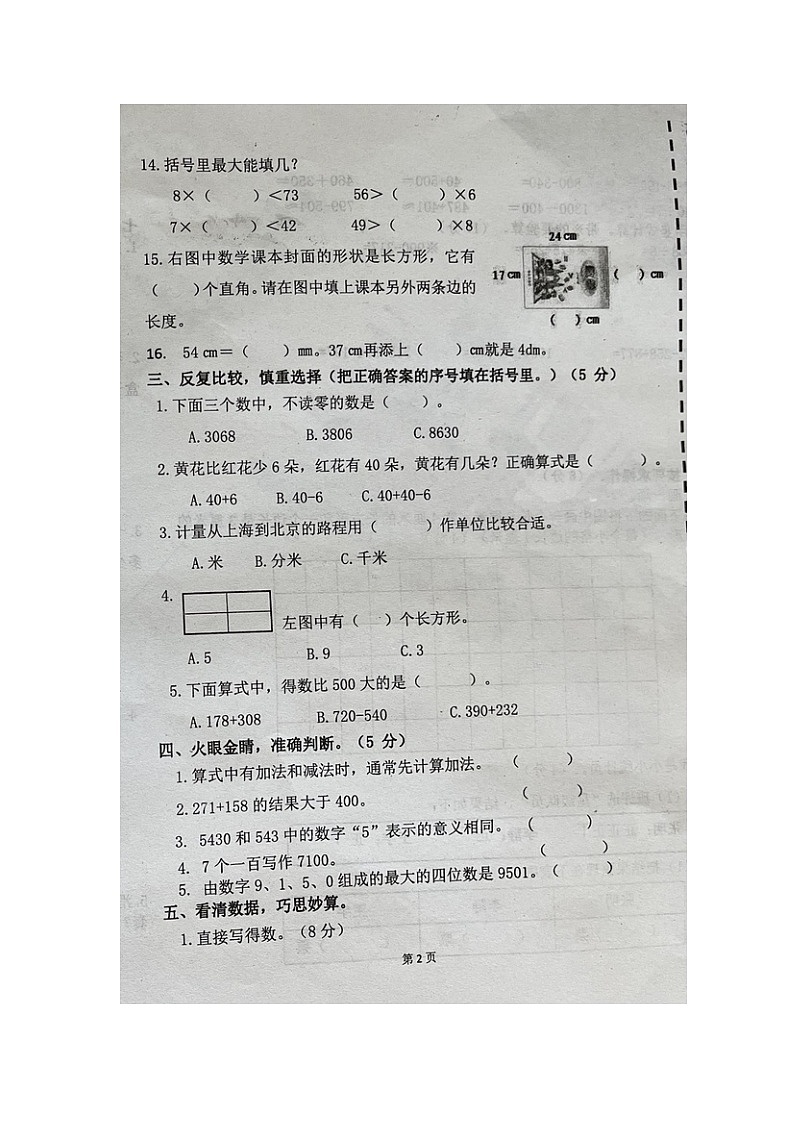 14.括号里最大能填几？
8×（　　）＜73　　56＞（　　）×6
7×（　　）＜42　　49＞（　　）×8
15.右图中数学课本封面的形状是长方形，它有
（　　）个直角。请在图中填上课本另外两条边的
长度。
24 cm
17 cm　（　）cm
（　）cm
16. 54 cm＝（　　）mm。37 cm再添上（　　）cm就是 4dm。
三、反复比较，慎重选择（把正确答案的序号填在括号里。）（5 分）
1.下面三个数中，不读零的数是（　　）。
A.3068　　B.3806　　C.8630
2.黄花比红花少 6 朵，红花有 40 朵，黄花有几朵？正确算式是（　　）。
A.40+6　　B.40-6　　C.40+40-6
3.计量从上海到北京的路程用（　　）作单位比较合适。
A.米　　B.分米　　C.千米
4.
左图中有（　）个长方形。
A.5　　B.9　　C.3
5.下面算式中，得数比 500 大的是（　　）。
A.178+308　　B.720-540　　C.390+232
四、火眼金睛，准确判断。（5 分）
1.算式中有加法和减法时，通常先计算加法。（　　）
2.271+158 的结果大于 400。（　　）
3. 5430 和 543 中的数字“5”表示的意义相同。（　　）
4. 7 个一百写作 7100。（　　）
5. 由数字 9、1、5、0 组成的最大的四位数是 9501。（　　）
五、看清数据，巧思妙算。
1.直接写得数。（8 分）
第 2 页